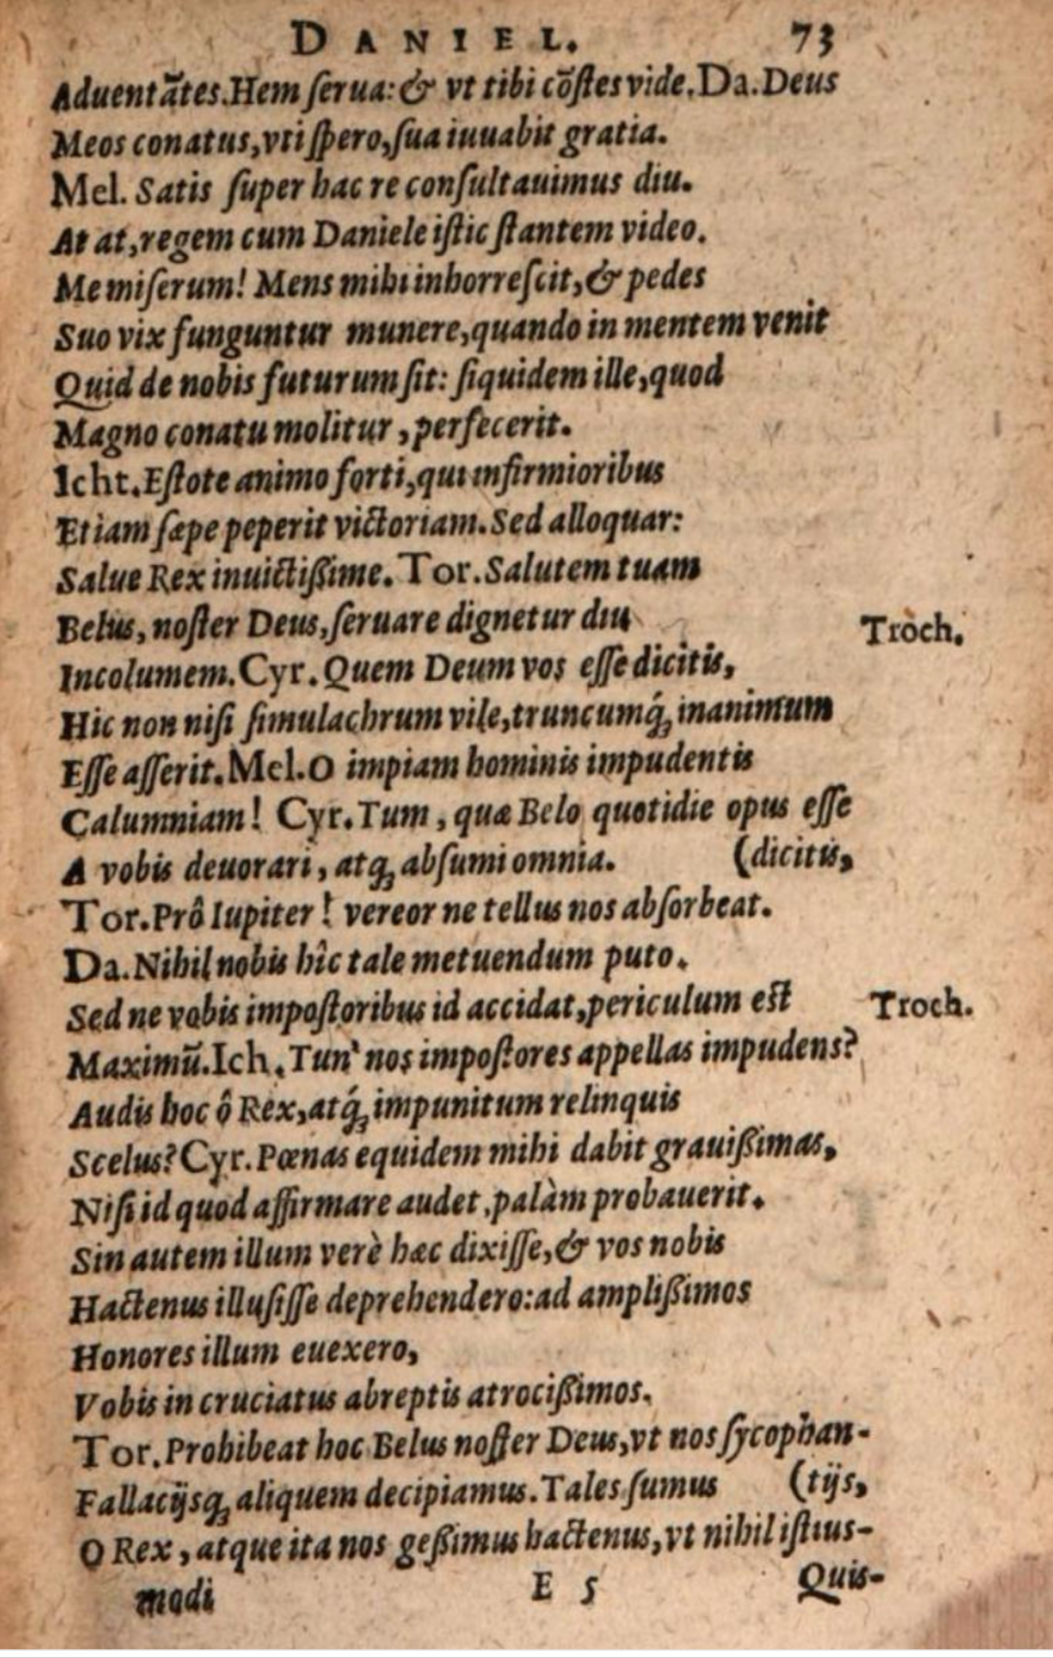 DANIEL. 73
Aduentãtes. Hem ſerua: & vt tibi cõſtes vide. Da. Deus
Meos conatus, vti ſpero, ſua iuuabit gratia.
Mel. Satis ſuper hac re conſultauimus diu.
At at, regem cum Daniele iſtic ſtantem video.
Me miſerum! Mens mihi inhorreſcit, & pedes
Suo vix funguntur munere, quando in mentem venit
Quid de nobis futurum ſit: ſiquidem ille, quod
Magno conatu molitur, perfecerit.
Icht. Eſtote animo forti, qui infirmioribus
Etiam ſæpe peperit victoriam. Sed alloquar:
Salue Rex inuictißime. Tor. Salutem tuam
Belus, noſter Deus, ſeruare dignetur diu
Troch.
Incolumem. Cyr. Quem Deum vos eſſe dicitis,
Hic non niſi ſimulachrum vile, truncumq́; inanimum
Eſſe aſſerit. Mel. O impiam hominis impudentis
Calumniam! Cyr. Tum, quæ Belo quotidie opus eſſe
A vobis deuorari, atq; abſumi omnia. (dicitis,
Tor. Prô Iupiter! vereor ne tellus nos abſorbeat.
Da. Nihil nobis hîc tale metuendum puto.
Sed ne vobis impoſtoribus id accidat, periculum eſt
Troch.
Maximũ. Ich. Tun' nos impoſtores appellas impudens?
Audis hoc ô Rex, atq́; impunitum relinquis
Scelus? Cyr. Pœnas equidem mihi dabit grauißimas,
Niſi id quod affirmare audet, palàm probauerit.
Sin autem illum verè hæc dixiſſe, & vos nobis
Hactenus illuſiſſe deprehendero: ad amplißimos
Honores illum euexero,
Vobis in cruciatus abreptis atrocißimos.
Tor. Prohibeat hoc Belus noſter Deus, vt nos ſycophan-
Fallacijsq; aliquem decipiamus. Tales ſumus (tijs,
O Rex, atque ita nos geßimus hactenus, vt nihil iſtius-
modi E 5 Quis-